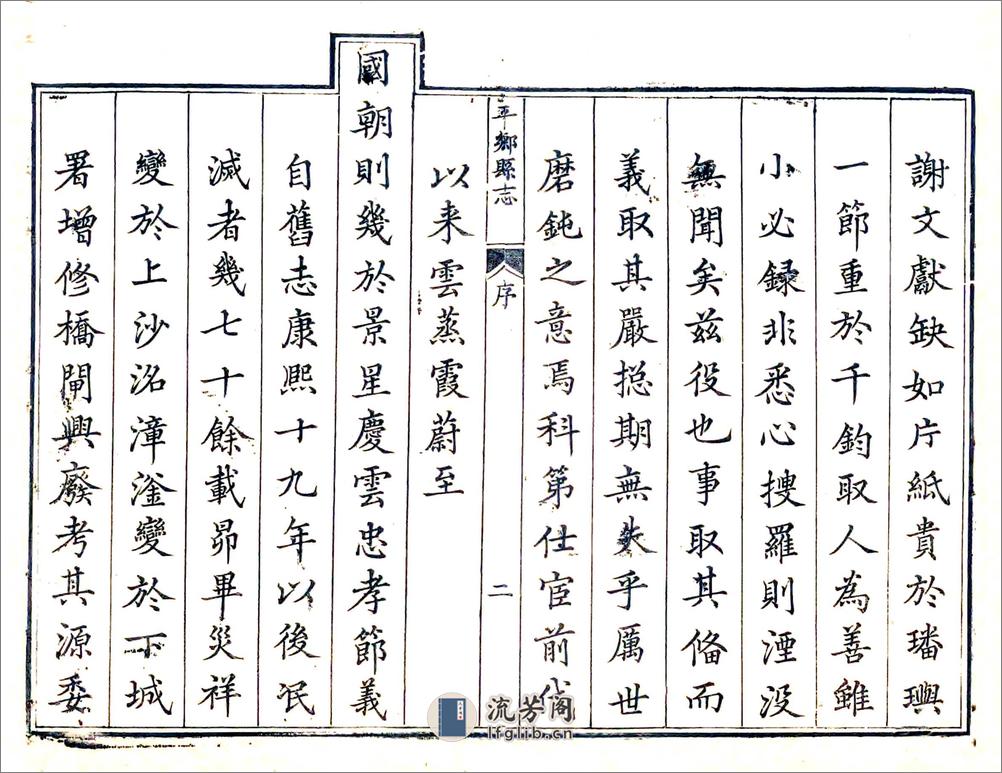 謝文獻缺如片紙貴於璠璵
一節重於千鈞取人為善雖
小必録非悉心搜羅則湮没
無聞矣兹役也事取其俻而
義取其嚴捴期無失乎厲世
磨鈍之意焉科第仕宦前代
以来雲蒸霞蔚至
平鄉縣志
序
二
國朝則幾於景星慶雲忠孝節義
自舊志康熙十九年以後泯
滅者幾七十餘載昴畢災祥
變於上沙洺漳滏變於下城
署增修橋閘興廢考其源委
流芳阁
lfglib.cn